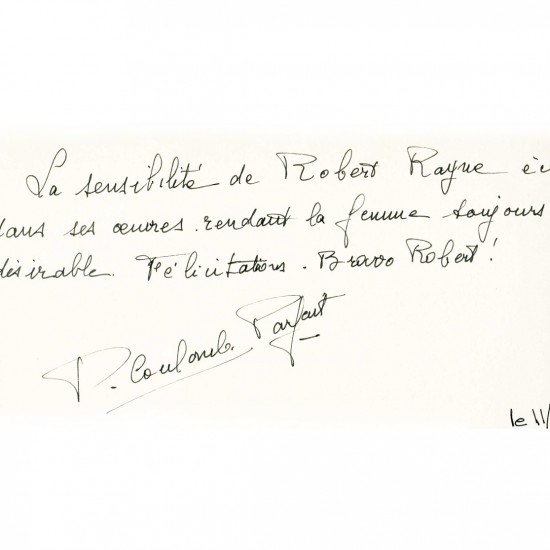 La sensibilité de Robert Rayne
dans ses œuvres rendant la femme toujours
désirable. Félicitations. Bravo Robert!
P. Coulomb. Parfait
le 11/